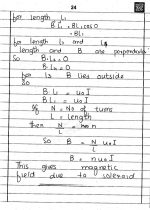 24
for length L₁
B·L₁ = BL₁ cos0
= BL₁
for length L₂ and L₄
length and B are perpendicular
So B·L₂ = 0
B·L₄ = 0
for L₃ B lies outside
So
BL = u₀I
BL = u₀I
If N = No of turns
L = length
then N/L = n
So B = N/L u₀I
B = nu₀I
This gives magnetic
field due to solenoid